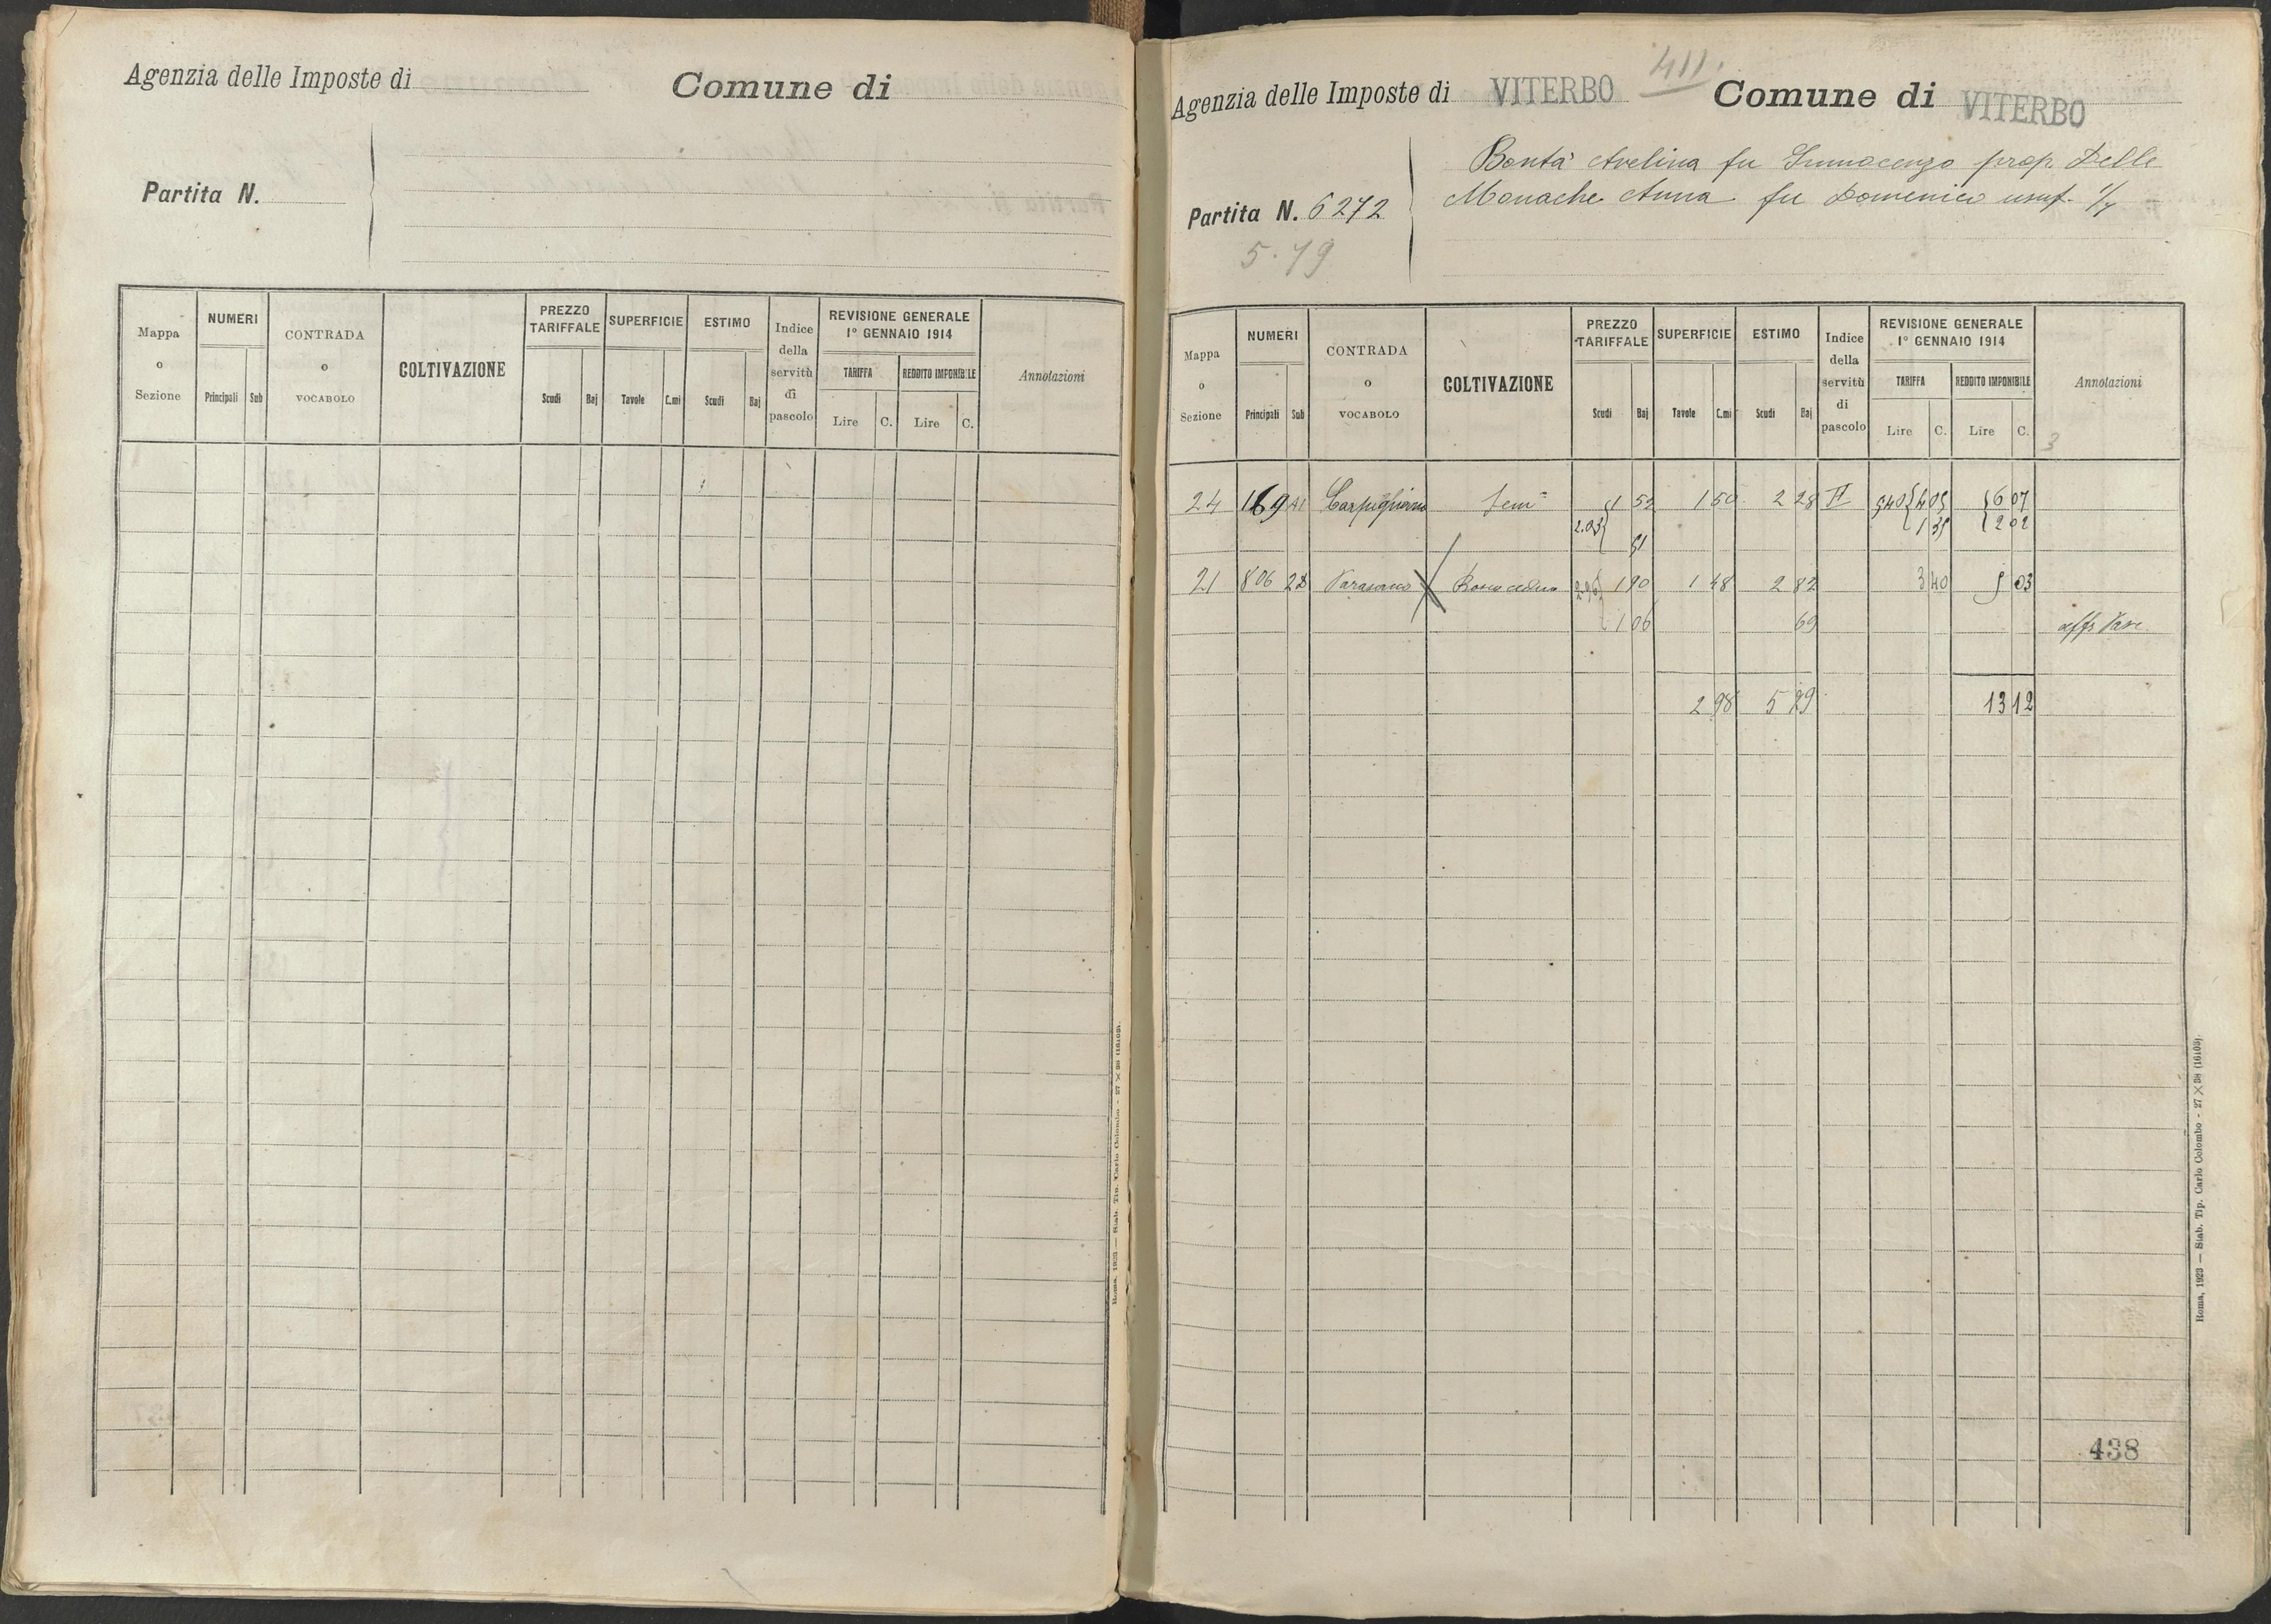 Agenzia delle Imposte di
Comune di
Partita N.
Mappa o Sezione
NUMERI
Principali Sub
CONTRADA o VOCABOLO
COLTIVAZIONE
PREZZO TARIFFALE
Scudi Baj
SUPERFICIE
Tavole C.mi
ESTIMO
Scudi Baj
Indice della servitù di pascolo
REVISIONE GENERALE
1° GENNAIO 1914
TARIFFA REDDITO IMPONIBILE
Lire C. Lire C.
Annotazioni
Roma, 1923 — Stab. Tip. Carlo Colombo - 27 X 38 (16103).
411.
Agenzia delle Imposte di VITERBO Comune di VITERBO
Bontà Avelina fu Innocenzo prop. Delle
Monache Anna fu Domenico usuf. 1/4
Partita N. 6272
5.79
Mappa o Sezione
NUMERI
Principali Sub
CONTRADA o VOCABOLO
COLTIVAZIONE
PREZZO TARIFFALE
Scudi Baj
SUPERFICIE
Tavole C.mi
ESTIMO
Scudi Baj
Indice della servitù di pascolo
REVISIONE GENERALE
1° GENNAIO 1914
TARIFFA REDDITO IMPONIBILE
Lire C. Lire C.
Annotazioni
3
24 169 A1 Semᵉ 1 52 1 50 2 28 II 540 4 05 6 07
2.03 51 1 35 2 02
21 806 Bosco ceduo 2.96 1 90 1 48 2 82 3 40 5 03
1 06 69
2 98 5 79 13 12
438
Roma, 1923 — Stab. Tip. Carlo Colombo - 27 X 38 (16103).